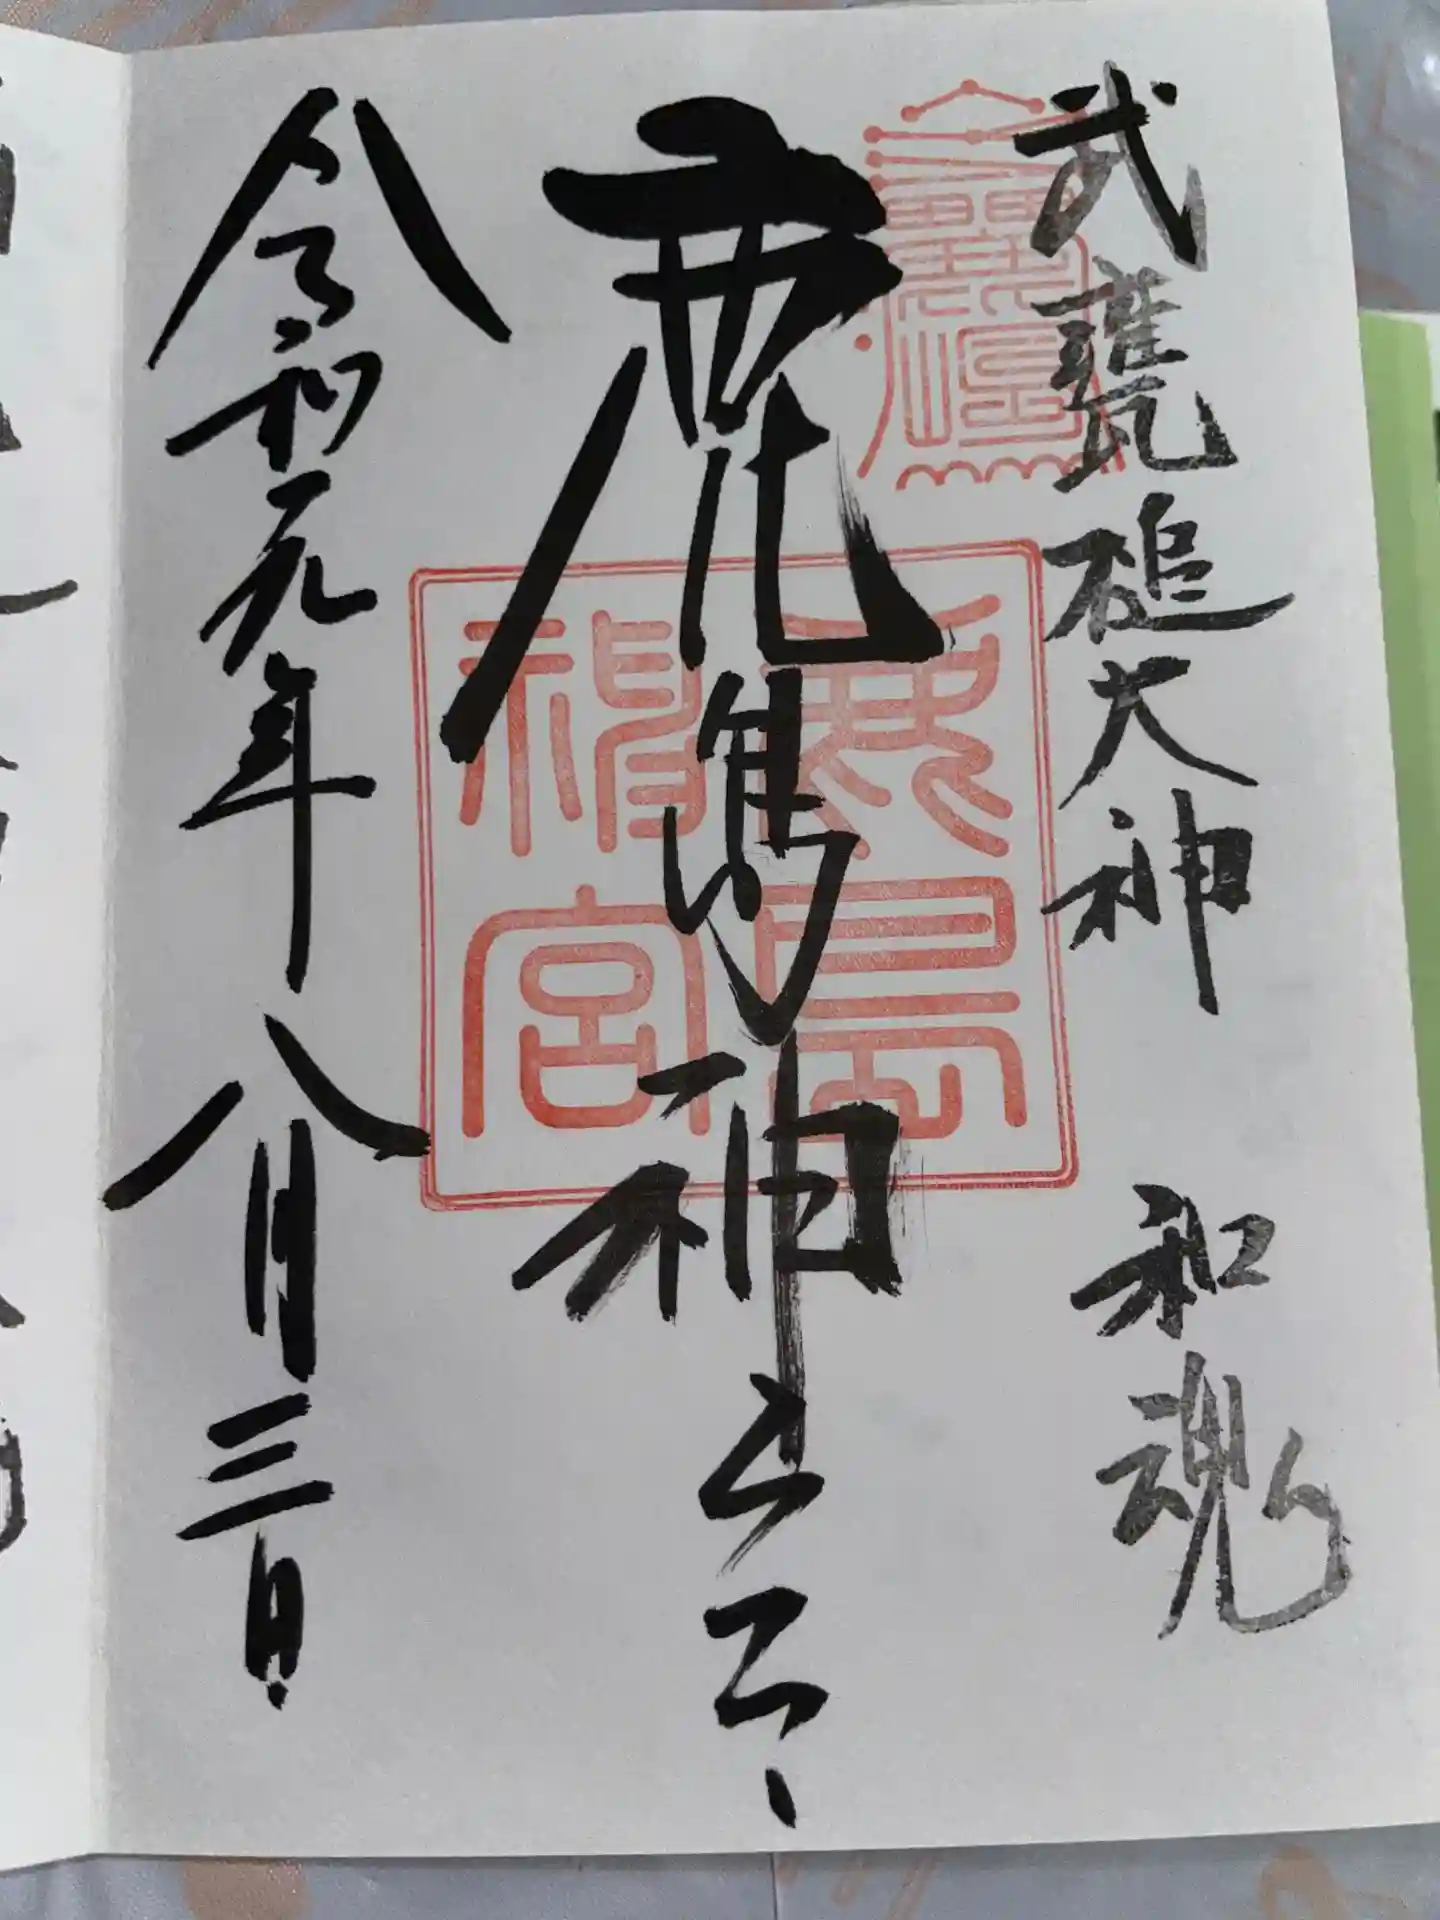 武甕槌大神 和魂
鹿島神宮
令和元年八月三日
鹿島
神宮